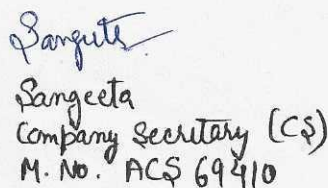 Sangeeta
Company Secretary (CS)
M. No. ACS 69410